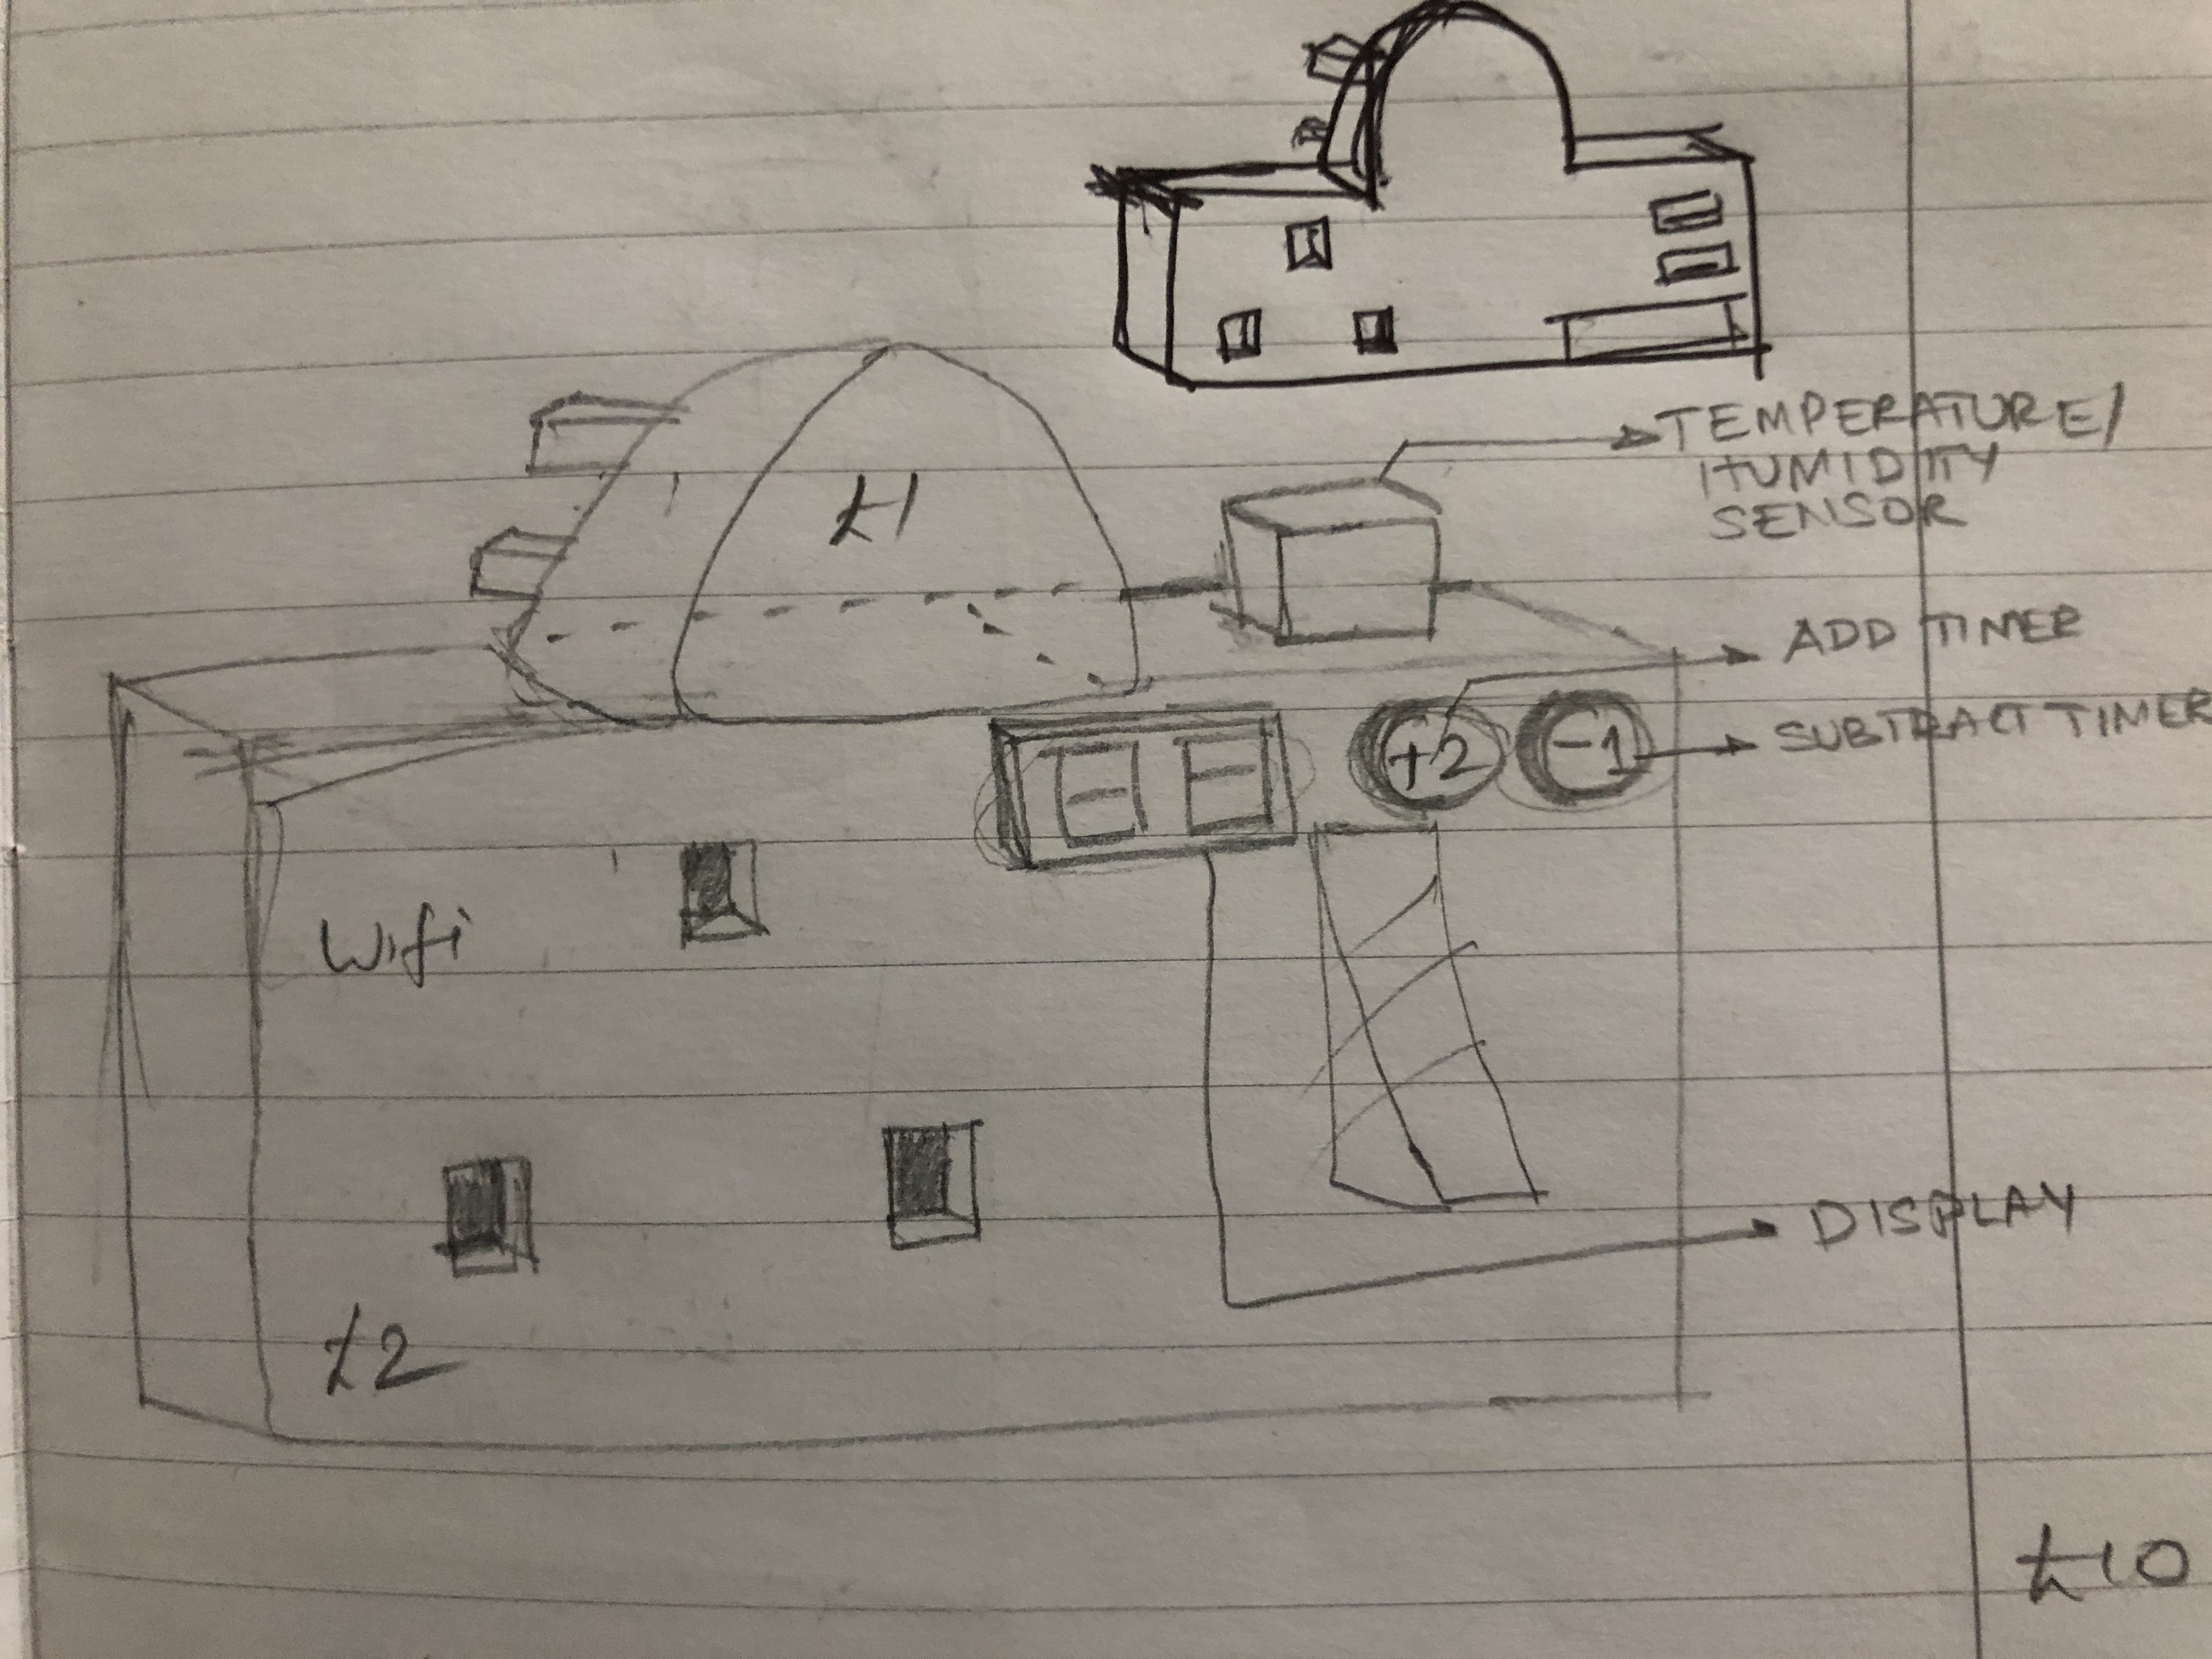 TEMPERATURE/
HUMIDITY
SENSOR
£1
ADD TIMER
+2
-1
SUBTRACT TIMER
88
Wifi
DISPLAY
£2
£10